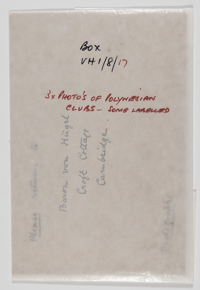 BOX
VH1/8/17
3x PHOTO'S OF POLYNESIAN
CLUBS - SOME LABELLED
Please return to
Baron von Hügel
Croft Cottage
Cambridge